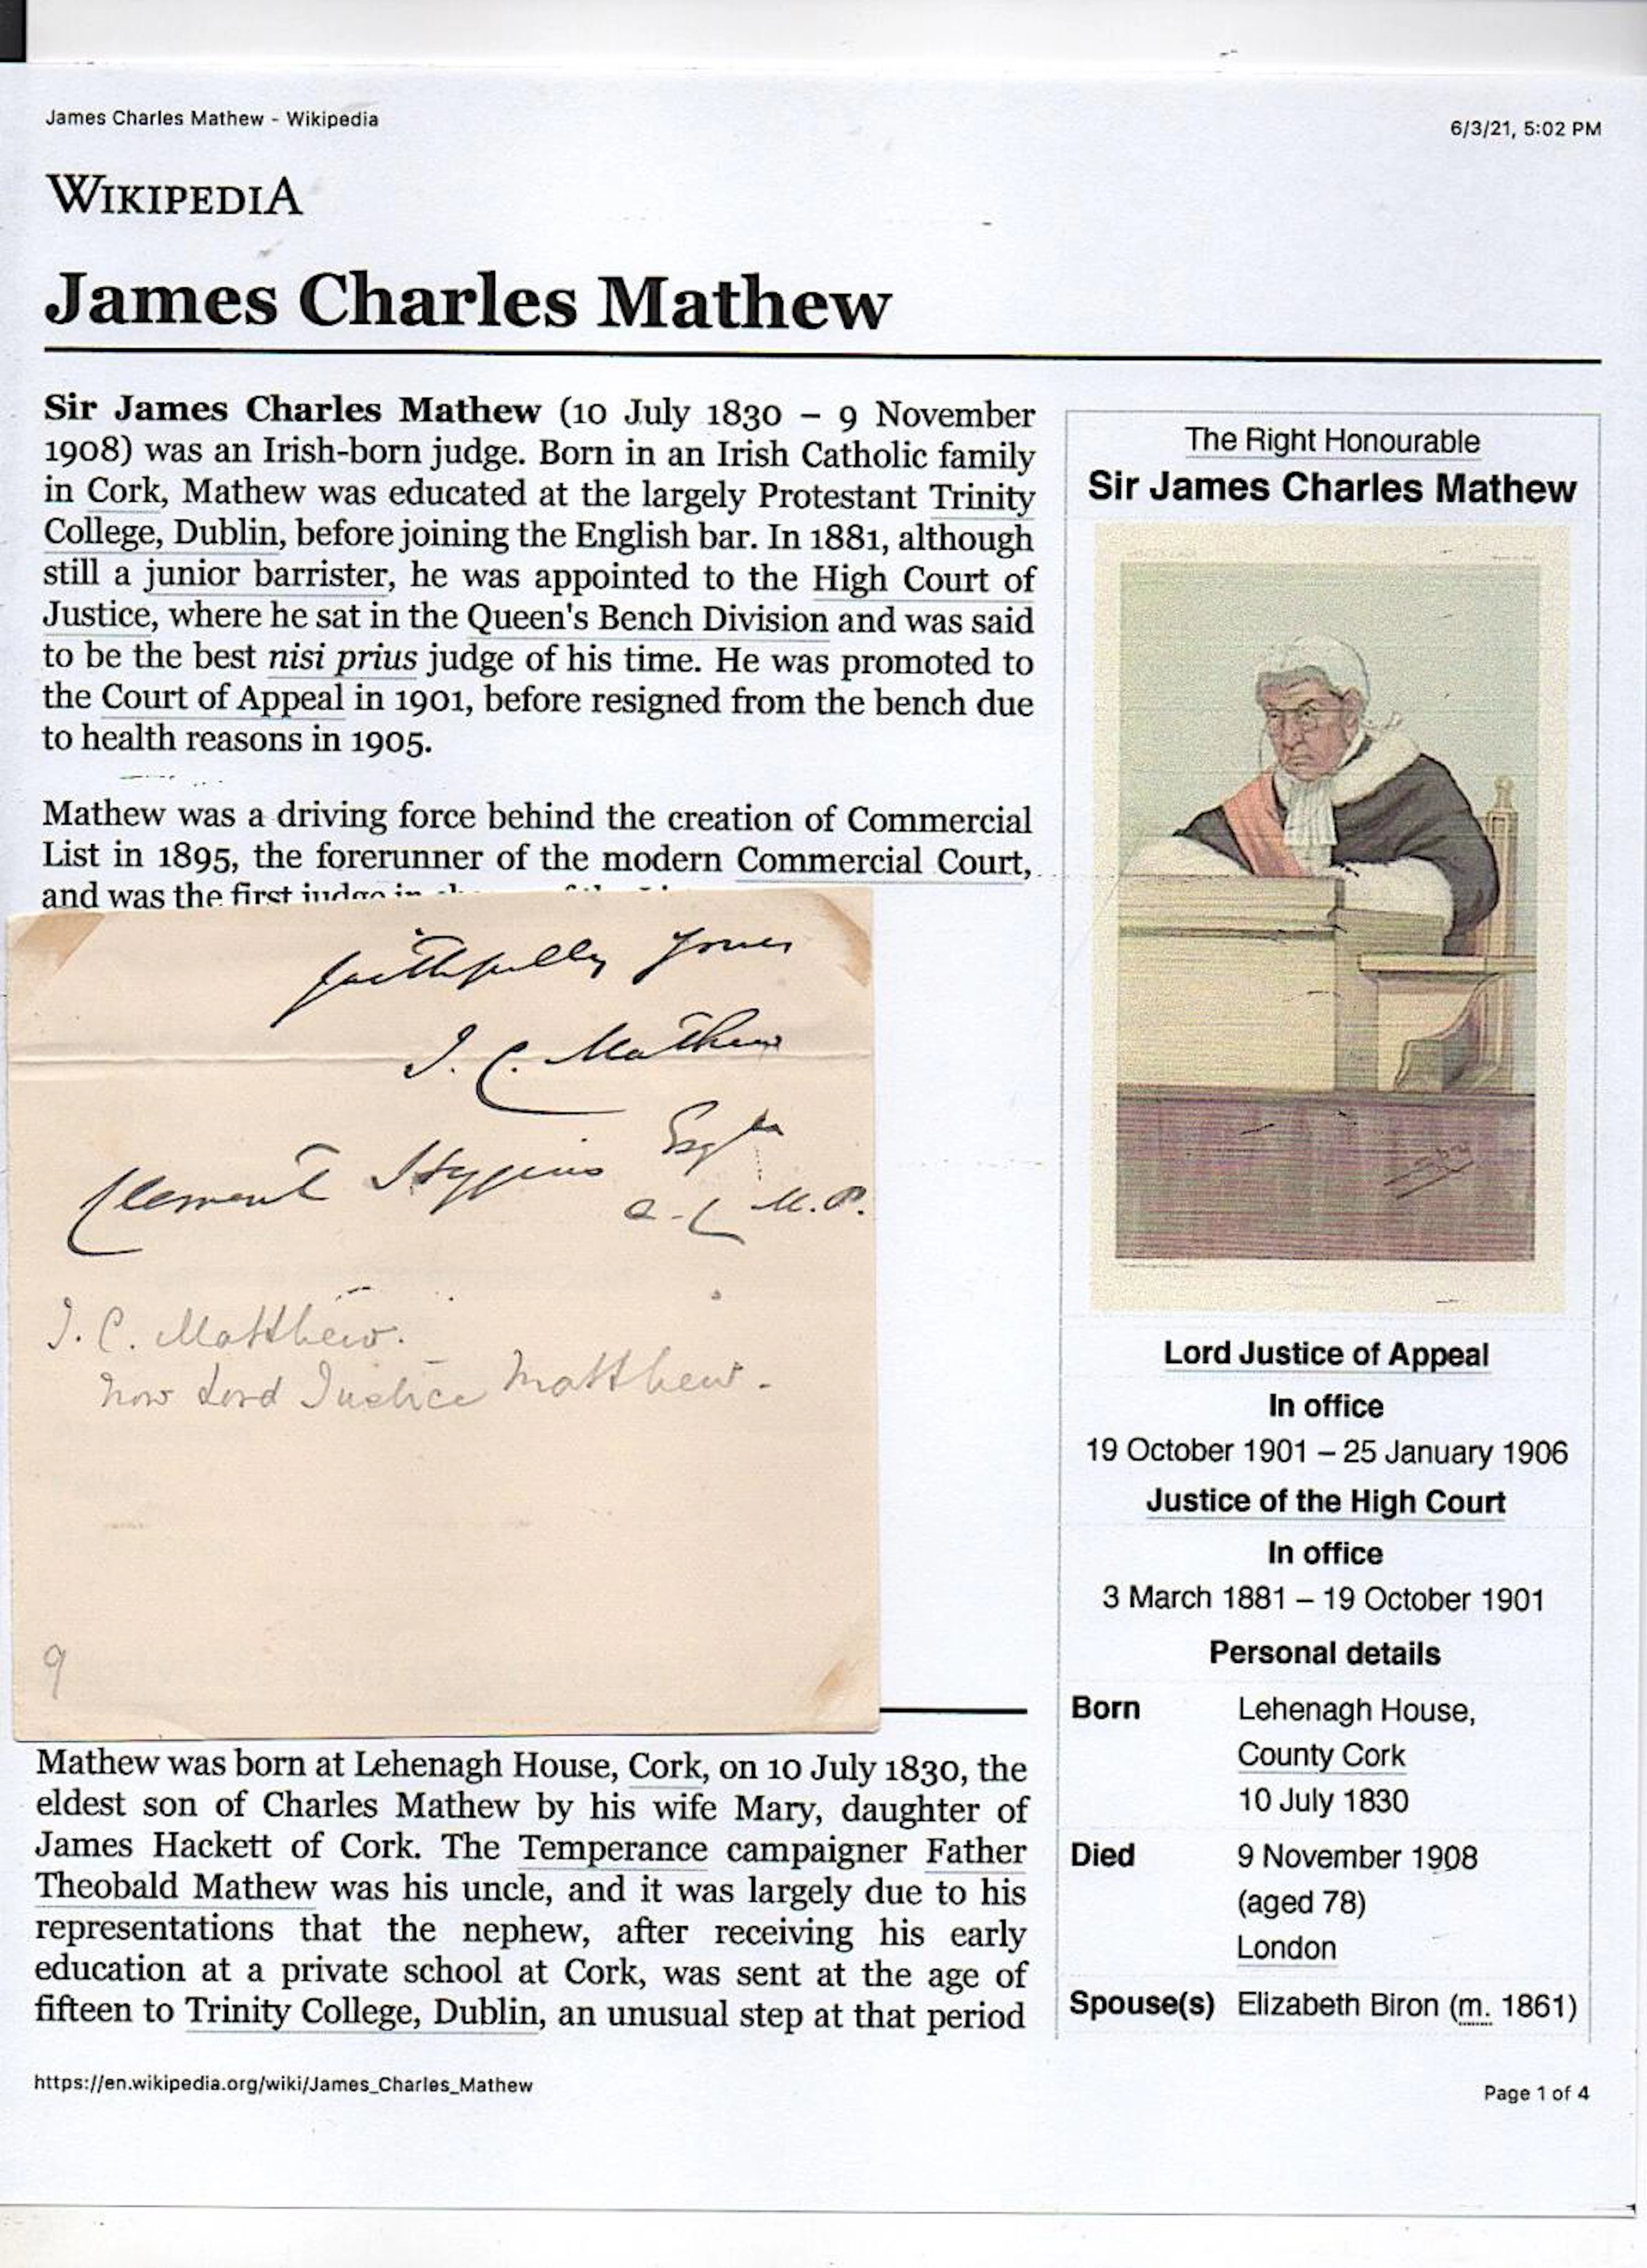 James Charles Mathew - Wikipedia
6/3/21, 5:02 PM
WIKIPEDIA
James Charles Mathew
Sir James Charles Mathew (10 July 1830 – 9 November
1908) was an Irish-born judge. Born in an Irish Catholic family
in Cork, Mathew was educated at the largely Protestant Trinity
College, Dublin, before joining the English bar. In 1881, although
still a junior barrister, he was appointed to the High Court of
Justice, where he sat in the Queen's Bench Division and was said
to be the best nisi prius judge of his time. He was promoted to
the Court of Appeal in 1901, before resigned from the bench due
to health reasons in 1905.
Mathew was a driving force behind the creation of Commercial
List in 1895, the forerunner of the modern Commercial Court,
and was the first judge in
faithfully yours
J. C. Mathew
Clement Higgins Esqre
Q.C. M.P.
J. C. Matthew.
now Lord Justice Matthew.
9
Mathew was born at Lehenagh House, Cork, on 10 July 1830, the
eldest son of Charles Mathew by his wife Mary, daughter of
James Hackett of Cork. The Temperance campaigner Father
Theobald Mathew was his uncle, and it was largely due to his
representations that the nephew, after receiving his early
education at a private school at Cork, was sent at the age of
fifteen to Trinity College, Dublin, an unusual step at that period
The Right Honourable
Sir James Charles Mathew
Lord Justice of Appeal
In office
19 October 1901 – 25 January 1906
Justice of the High Court
In office
3 March 1881 – 19 October 1901
Personal details
Born Lehenagh House,
County Cork
10 July 1830
Died 9 November 1908
(aged 78)
London
Spouse(s) Elizabeth Biron (m. 1861)
https://en.wikipedia.org/wiki/James_Charles_Mathew
Page 1 of 4